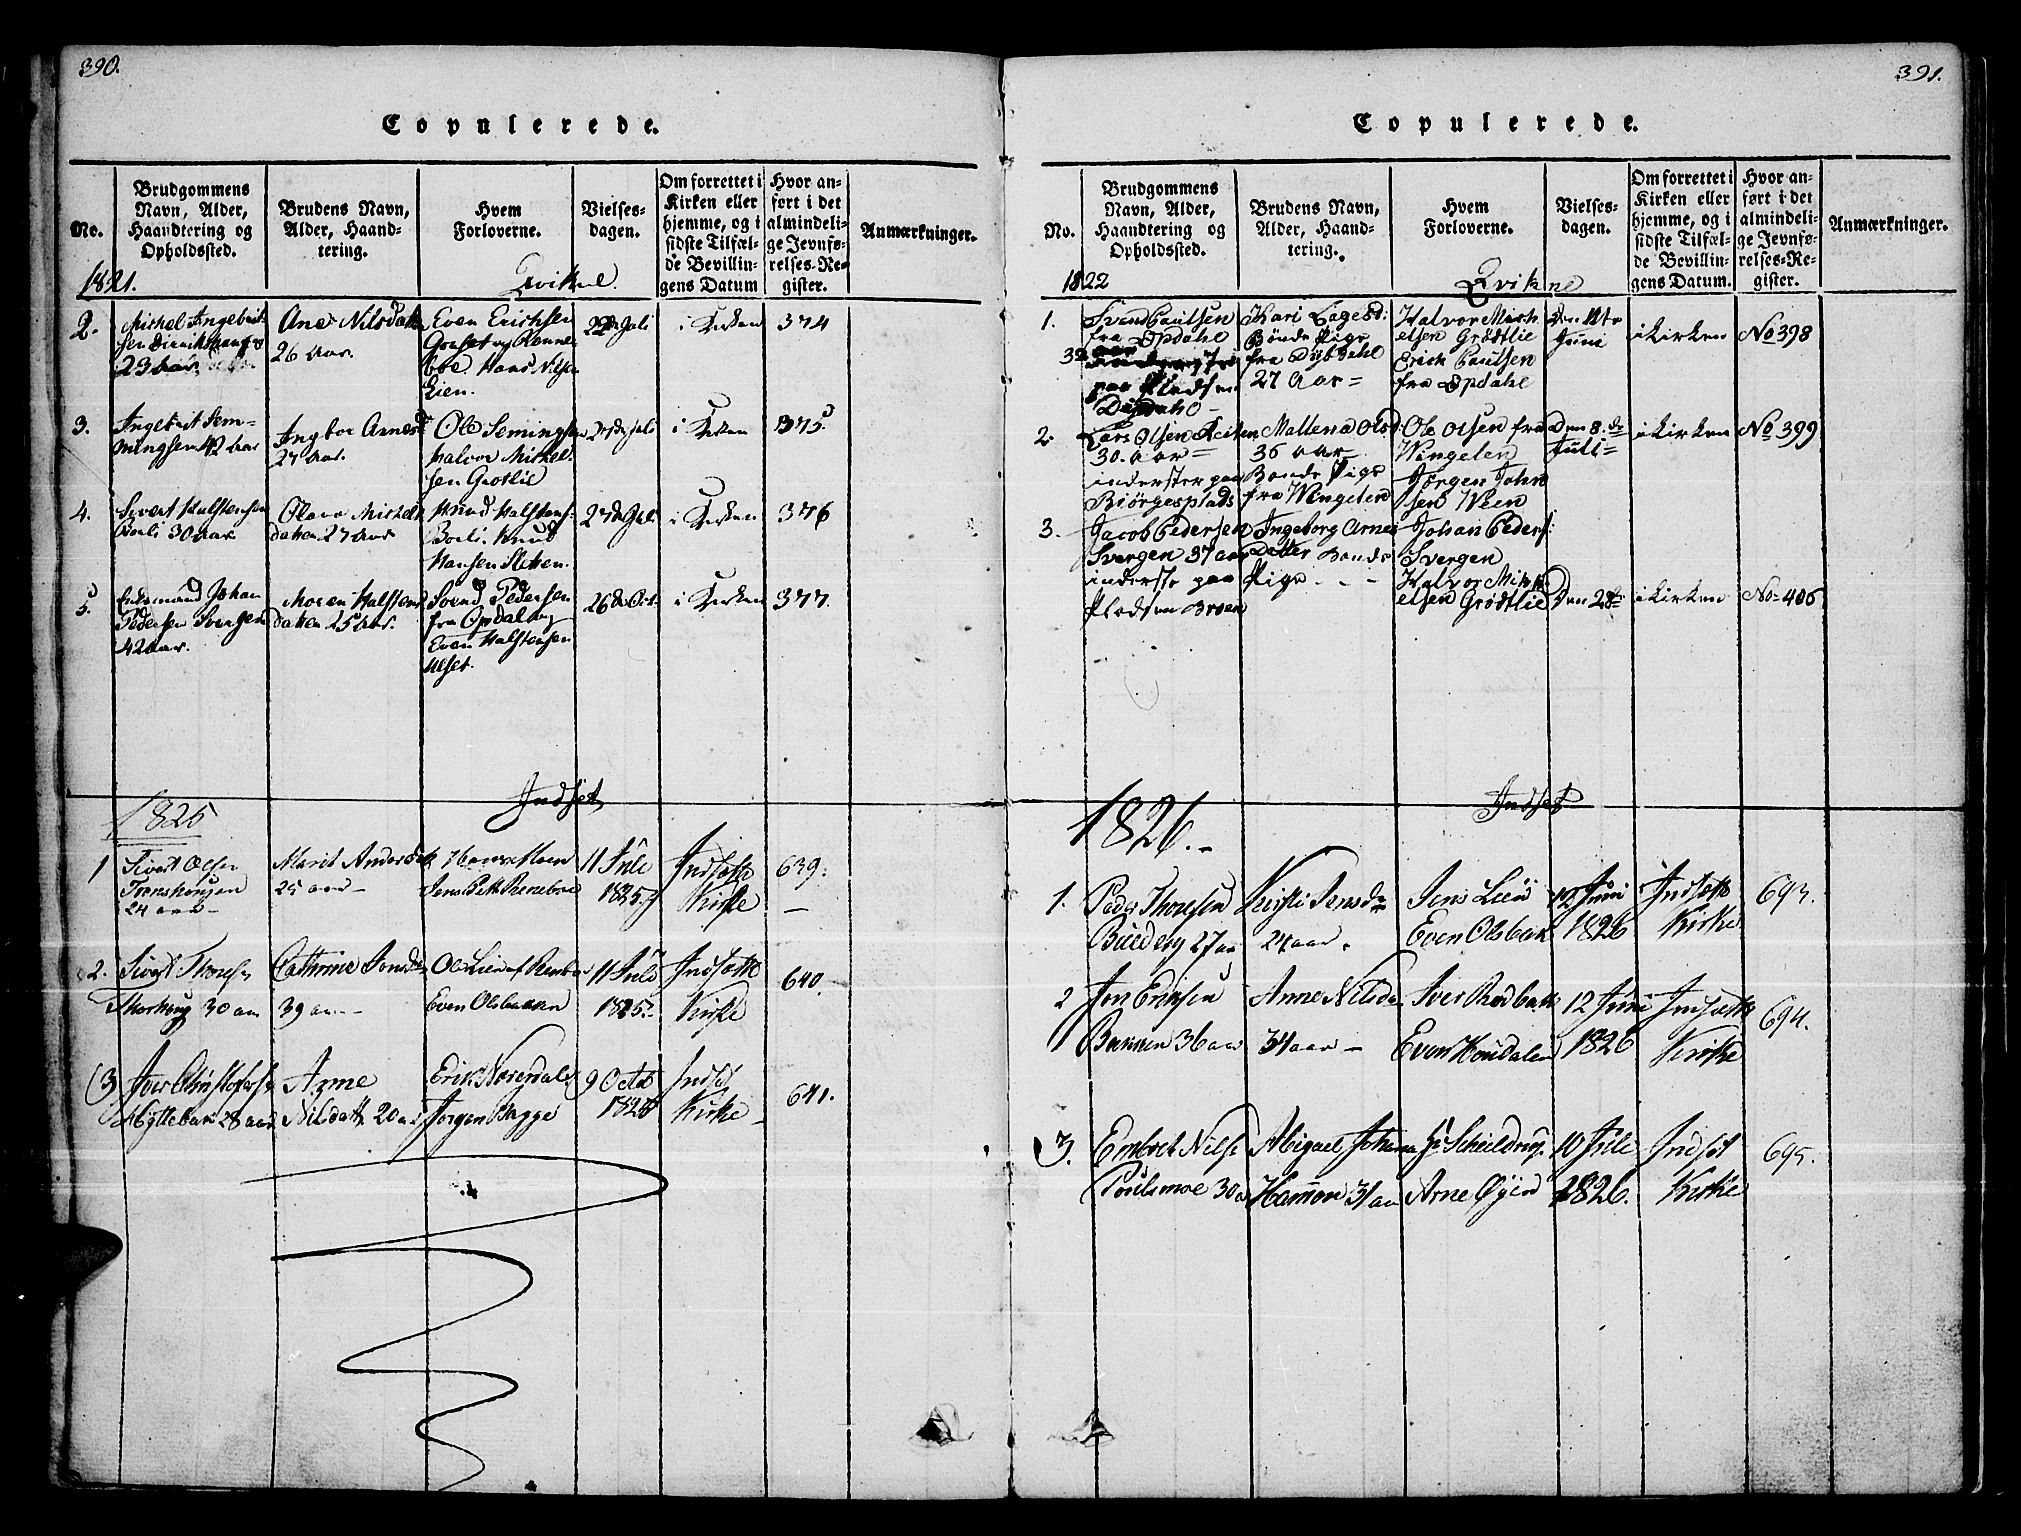 390.
Copulerede.
No.
Brudgommens
Navn, Alder,
Haandtering og
Opholdssted.
Brudens Navn,
Alder, Haand-
tering.
Hvem
Forloverne.
Vielses-
dagen.
Om forrettet i
Kirken eller
hjemme, og i
sidste Tilfæl-
de Bevillin-
gens Datum
Hvor an-
ført i det
almindeli-
ge Jevnfø-
relses-Re-
gister.
Anmærkninger.
1821.
Qvikne
2.
Michel Ingebrit-
23 Aar
Ane Nilsdatt
26 Aar.
Even Erichsen
Hans Nilsen
Eien.
22de Juli
i Kirken
374
3.
Ingebrit Sem-
mingsen 42 Aar
Ingbor Arnesd
27 Aar.
Ole Semingsen
Halvor Mickel-
sen Grøtlie
27de Juli
i Kirken
375
4.
Sivert Halstensen
Boeli 30 Aar.
Olava Michels
datter 27 Aar
Knud Halstens.
Boeli. Knud
Hansen Sletten.
27de Juli
i Kirken
376
5.
Enkemand Johan
Pedersen Svergen
42 Aar.
Moren Halstens
datter 25 Aar.
Svend Pedersen
fra Opdal og
Even Halstensen
Ulset.
26de Oct.
i Kirken
377.
Indset
1825
1
Sivert Olsen
24 aar
Marit Andersdatt
25 aar
Hans Moen
Jens Pett Renneboe
11 Jule
1825.
Indsætte
Kirke
639.
2.
Sivert Thoresen
30 aar
Cathrine Jonsdr
39 aar
Ole Lien af Renboe
Even Olsbakken
11 Jule
1825.
Indsætte
Kirke
640.
3
Iver Christophersen
Hyttebak 28 aar
Anne
Nilsdatt 20 aar
Erik Noverdale
Jørgen Bagge
9 Octob
1825
Indset
Kirke
641.
391.
Copulerede.
No.
Brudgommens
Navn, Alder,
Haandtering og
Opholdssted.
Brudens Navn,
Alder, Haand-
tering.
Hvem
Forloverne.
Vielses-
dagen.
Om forrettet i
Kirken eller
hjemme, og i
sidste Tilfæl-
de Bevillin-
gens Datum.
Hvor an-
ført i det
almindeli-
ge Jevnfø-
relses-Re-
gister.
Anmærkninger.
1822
Qvikne
1.
Svend Paulsen
fra Opdahl
32 aar
paa Pladsen
Dypdahl
Kari Lagesd:
Bonde Pige
fra Dypdahl
27 Aar =
Halvor Mick
elsen Grødtlie
Erick Paulsen
fra Opdahl
Juni
i Kirken
No 398
2.
Lars Olsen Reiten
30. Aar =
inderster paa
Biørgesplads
Mallena Olsd
36 Aar
Bonde Pige
fra Wingelen
Ole Olsen fra
Wingelen
Jørgen John
sen Ween
Den 8. de
Juli =
i Kirken
No 399
3.
Jacob Pedersen
Svergen 37 aar
inderste paa
Pladsen Broen
Ingeborg Arnes
Datter Bonde
Pige
Johan Peders:
Svergen
Halvor Mick
elsen Grødtlie
Den 28de
i Kirken
No 406
Indset
1826.
1.
Peder Thoresen
27 aar
Kirsti Jensdr
24 aar.
Jens Lien
Even Olsbak
12 Juni
1826
Indsætte
Kirke
693.
2
Jon Eriksen
36 aar
Anne Nilsdr
34 aar
Iver Rødbakk
Even Houdalen
12 Juni
1826
Indsætte
Kirke
694.
3.
Embret Nilse
Poulsmoe 30 a
Abigael Johanna
Hammer 31 aar
Hr Schieldrup
Arne Øien
10 Jule
1826.
Indset
Kirke
695.